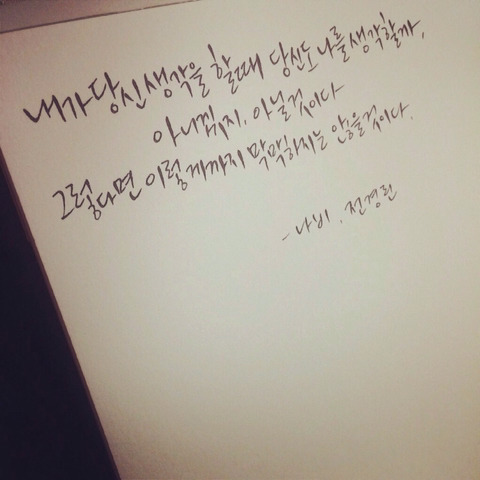 내가 당신 생각을 할때 당신도 나를 생각할까,
아니겠지. 아닐것이다
그렇다면 이렇게까지 막막하지는 않을것이다.
- 나비, 전경린